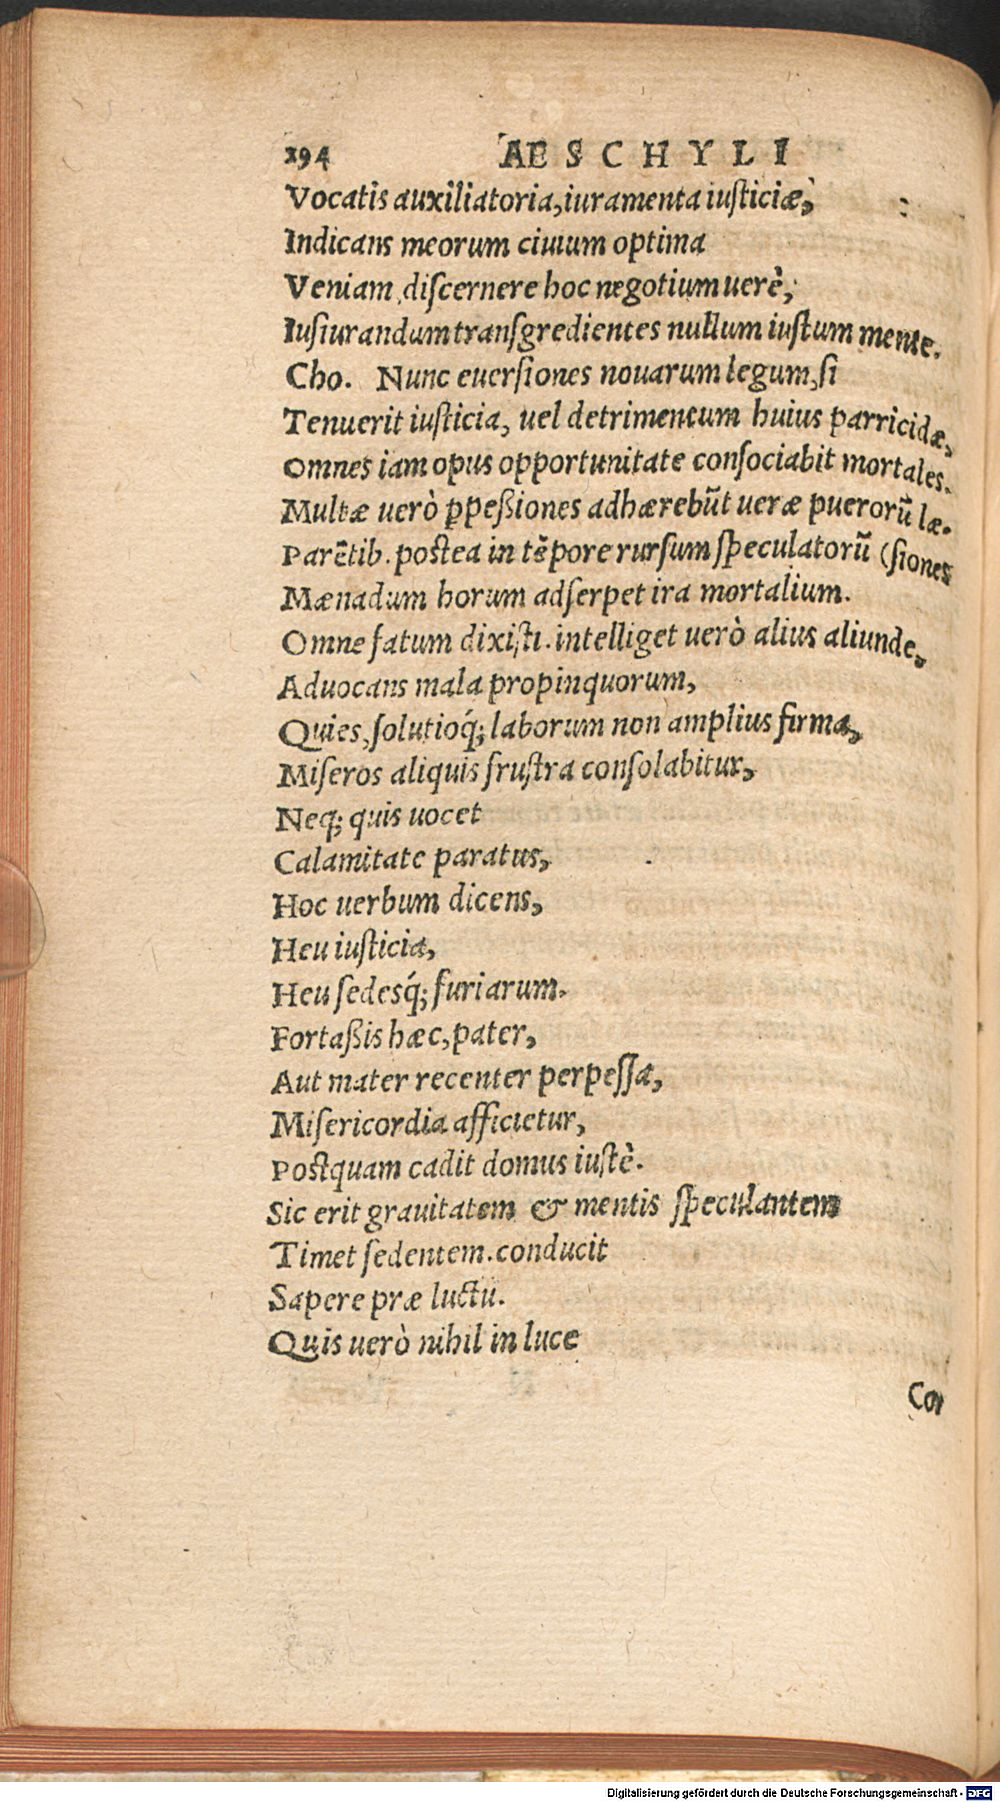 194 AESCHYLI
Vocatis auxiliatoria, iuramenta iusticiæ,
Indicans meorum ciuium optima
Veniam, discernere hoc negotium uerè,
Iusiurandum transgredientes nullum iustum mente.
Cho. Nunc euersiones nouarum legum, si
Tenuerit iusticia, uel detrimentum huius parricidæ,
Omnes iam opus opportunitate consociabit mortales.
Multæ uerò ꝑpeßiones adhærebūt ueræ puerorū læ-
Parētib. postea in tēpore rursum speculatorū (siones
Mænadum horum adserpet ira mortalium.
Omne fatum dixisti. intelliget uerò alius aliunde,
Aduocans mala propinquorum,
Quies, solutioq́; laborum non amplius firma,
Miseros aliquis frustra consolabitur,
Neq; quis uocet
Calamitate paratus,
Hoc uerbum dicens,
Heu iusticia,
Heu sedesq́; furiarum.
Fortaßis hæc, pater,
Aut mater recenter perpessa,
Misericordia afficietur,
Postquam cadit domus iustè.
Sic erit grauitatem & mentis speculantem
Timet sedentem. conducit
Sapere præ luctu.
Quis uerò nihil in luce
Cor
Digitalisierung gefördert durch die Deutsche Forschungsgemeinschaft - DFG